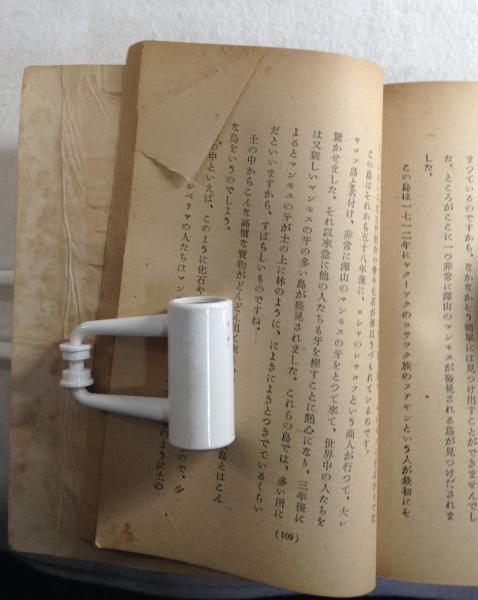 まつているのですから、なかなかそう簡單には見つけ出すことができませんでし
た。ところがここに一つ非常に澤山のマンモスが發見される島が見つけだされま
した。
この島は一七一二年にヤクーツクのコサツク族のフアギンという人が最初にそ
骨や化石が澤山うづもれているのです。
この島はそれから五十八年後に、ロシヤのレヤコフという商人が行つて、大レ
ヤコフ島と名付け、非常に澤山のマンモスの牙をとつて來て、世界中の人たちを
驚かせました。それ以來急に他の人たちも牙を探すことに熱心になり、三年後に
は又新しいマンモスの牙の多い島が發見されました。これらの島では、多い所に
よるとマンモスの牙が土の上に林のように、によきによきとつきでているくらい
だといいますから、すばらしいものですね。
土の中からこんな高價な寶物がどんどん出て
島とはこん
な島をいうのでしよう。
の中といえば、このように化石や
ので、少
シベリヤの人たちはマン
のように土の
(109)